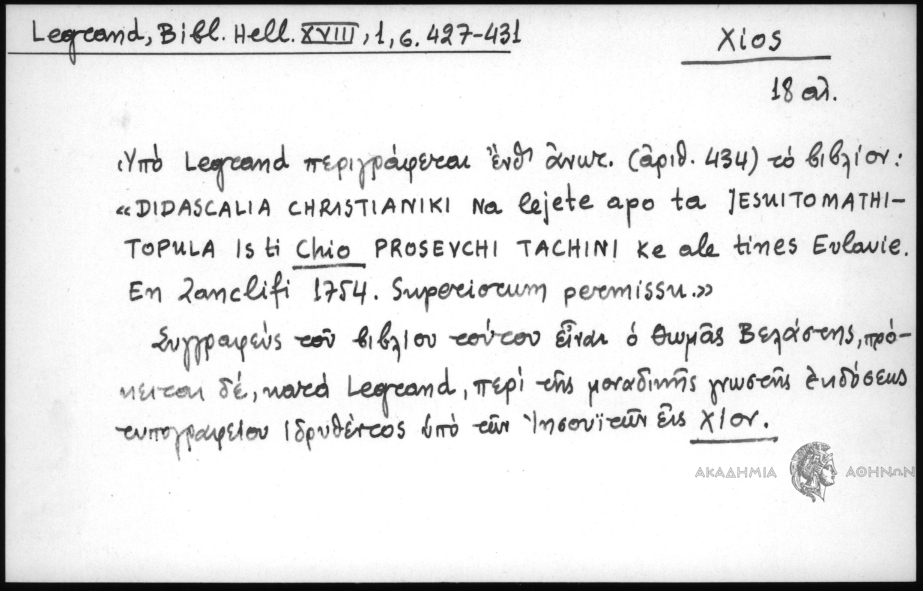 Legrand, Bibl. Hell. XVIII, 1, σ. 427-431
Χίος
18 αι.
Ὑπό Legrand περιγράφεται ἔνθ' ἀνωτ. (ἀριθ. 434) τό βιβλίον:
«DIDASCALIA CHRISTIANIKI Na lejete apo ta JESUITOMATHI-
TOPULA Is ti Chio PROSEVCHI TACHINI Ke ale tines Evlavie.
En Zanclifi 1754. Superiorum permissu.»
Συγγραφεύς τοῦ βιβλίου τούτου εἶναι ὁ Θωμᾶς Βελάστης, πρό-
κειται δέ, κατά Legrand, περί τῆς μοναδικῆς γνωστῆς ἐκδόσεως
τυπογραφείου ἱδρυθέντος ὑπό τῶν Ἰησουϊτῶν εἰς Χίον.
ΑΚΑΔΗΜΙΑ ΑΘΗΝΩΝ